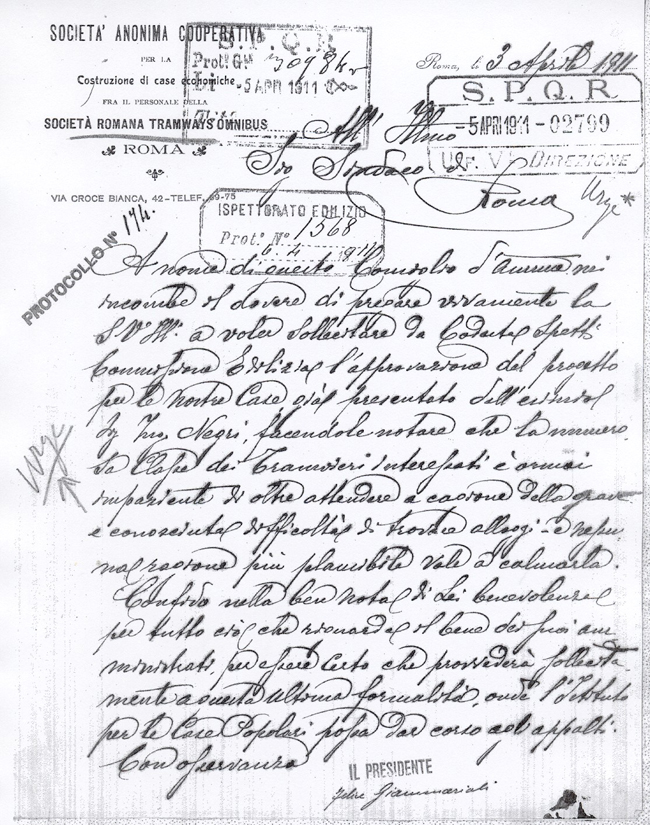 SOCIETA' ANONIMA COOPERATIVA
PER LA
Costruzione di case economiche
FRA IL PERSONALE DELLA
SOCIETÀ ROMANA TRAMWAYS OMNIBUS
ROMA
VIA CROCE BIANCA, 42-TELEF. 69-75
S.P.Q.R
Prot. Gle
Li -5 APR 1911
Tit.
Roma, li 3 Aprile 1911
S.P.Q.R
5 APR 1911 - 02799
Uff. V° DIREZIONE
All' Illmo
Sig Sindaco di
Roma
Urge
ISPETTORATO EDILIZIO
Prot. N° 1568
6 4 1911
PROTOCOLLO N° 174.
A nome di questo Consiglio d'Ammne mi
incombe il dovere di pregare vivamente la
S.V. Ill. a voler sollecitare da Codesta Spett.
Commissione Edilizia l'approvazione del progetto
per le nostre Case già presentato dall'
Ing. Negri, facendole notare che la numero
sa Classe dei Tramvieri interessati è ormai
impaziente di oltre attendere a cagione della grave
e conosciuta difficoltà di trovare alloggi - e nessu
na ragione più plausibile vale a calmarla.
Urge
Confido nella ben nota di Lei benevolenza
per tutto ciò che riguarda il bene dei suoi am
ministrati, per essere certo che provvederà sollecita
mente a questa ultima formalità, onde l'Istituto
per le Case Popolari possa dar corso agli appalti.
Con osservanza
IL PRESIDENTE
Felice Giammarioli